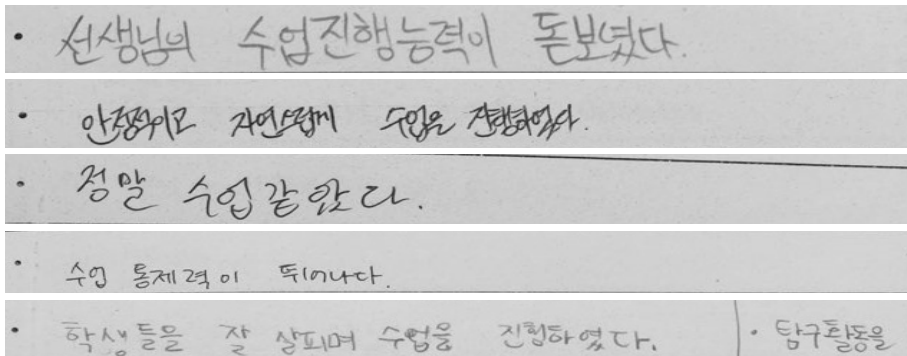 · 선생님의 수업진행능력이 돋보였다.
· 안정적이고 자연스럽게 수업을 진행하였다.
· 정말 수업같았다.
· 수업 통제력이 뛰어나다.
· 학생들을 잘 살피며 수업을 진행하였다. · 탐구활동을